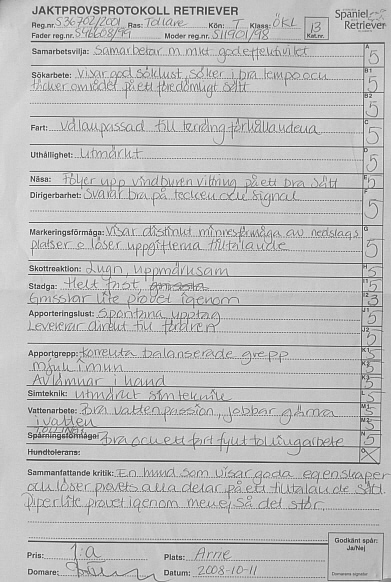 JAKTPROVSPROTOKOLL RETRIEVER
Spaniel Retriever
Reg.nr. S36702/2001 Ras: Tollare Kön: T Klass: ÖKL 13 Kat.nr.
Fader reg.nr. S46608/99 Moder reg.nr. S11901/98
Samarbetsvilja: Samarbetar m mkt god effektivitet A 5
Sökarbete: Visar god söklust, söker i bra tempo och B1 5
täcker området på ett föredömligt sätt
B2 5
Fart: Välanpassad till terrängförhållandena C 5
Uthållighet: Utmärkt D 5
Näsa: Följer upp vindburen vittring på ett bra sätt E 5
Dirigerbarhet: Svarar bra på tecken och signal F 5
Markeringsförmåga: Visar distinkt minnesförmåga av nedslags G 5
platser o löser uppgifterna tilltalande
Skottreaktion: Lugn, uppmärksam H 5
Stadga: Helt fast, I1 5
Gnisslar lite provet igenom I2 3
Apporteringslust: Spontana upptag J1 5
Levererar direkt till föraren
J2 5
Apportgrepp: Korrekta balanserade grepp K1 5
mjuk i mun K2 5
Avlämnar i hand K3 5
Simteknik: Utmärkt simteknik L 5
Vattenarbete: Bra vattenpassion, jobbar gärna M1 5
i vatten M2 5
TOLLING
Spårningsförmåga: Bra och ett fartfyllt tollingarbete N 5
Hundtolerans: O
Sammanfattande kritik: En hund som visar goda egenskaper
och löser provets alla delar på ett tilltalande sätt.
Piper lite provet igenom men ej så det stör.
Godkänt spår: Ja/Nej
Pris: 1:a Plats: Arne
Domare: Datum: 2008-10-11
Domarens signatur